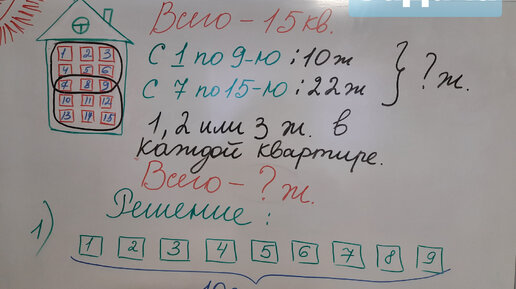 Всего - 15 кв.
1 2 3
4 5 6
7 8 9
10 11 12
13 14 15
С 1 по 9-ю : 10 ж
С 7 по 15-ю : 22 ж
} ? ж.
1, 2 или 3 ж. в
каждой квартире.
Всего - ? ж.
Решение :
1)
1 2 3 4 5 6 7 8 9